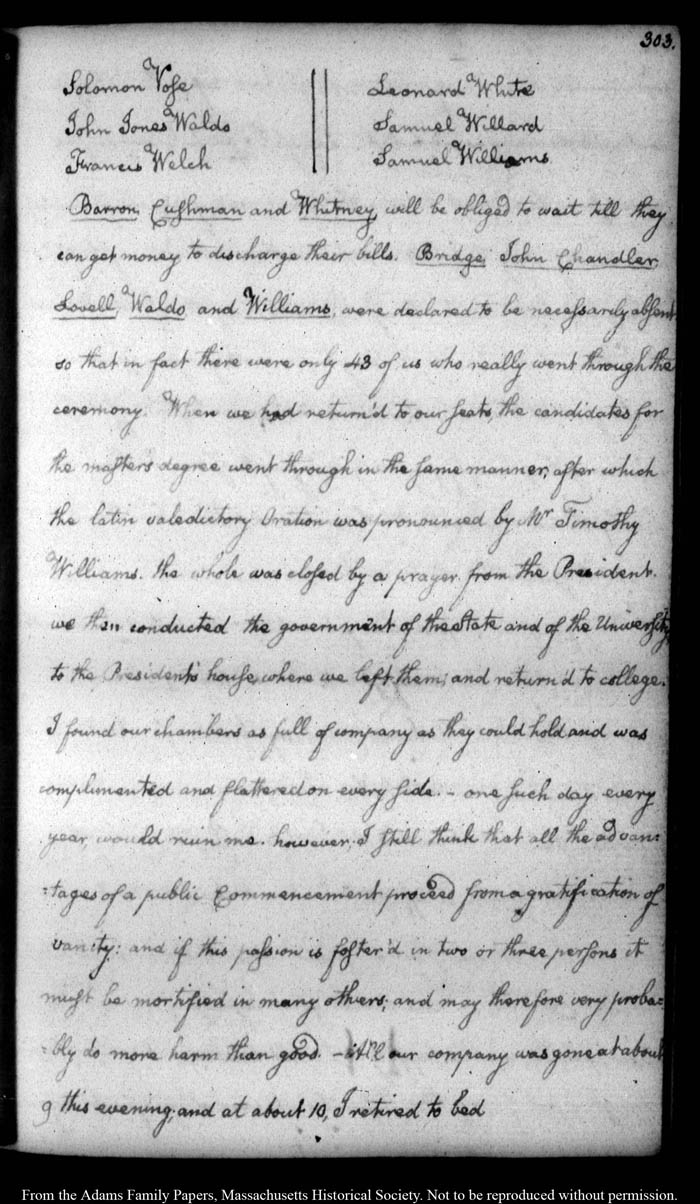 303.
Solomon Vose || Leonard White
John Jones Waldo || Samuel Willard
Francis Welch || Samuel Williams
Barron, Cushman and Whitney, will be obliged to wait till they
can get money to discharge their bills. Bridge, John Chandler,
Lovell, Waldo and Williams, were declared to be necessarily absent
so that in fact there were only 43 of us who really went through the
ceremony. When we had return'd to our seats, the candidates for
the master's degree went through in the same manner; after which
the latin valedictory Oration was pronounced by Mr Timothy
Williams. the whole was closed by a prayer from the President.
we then conducted the government of the State and of the University
to the President's house, where we left them; and return'd to college.
I found our chambers as full of company as they could hold and was
complimented and flattered on every side. - one such day every
year, would ruin me. however. I still think that all the advan:
:tages of a public Commencement proceed from a gratification of
vanity: and if this passion is foster'd in two or three persons it
must be mortified in many others; and may therefore very proba:
:bly do more harm than good. - All our company was gone at about
9 this evening; and at about 10, I retired to bed
From the Adams Family Papers, Massachusetts Historical Society. Not to be reproduced without permission.